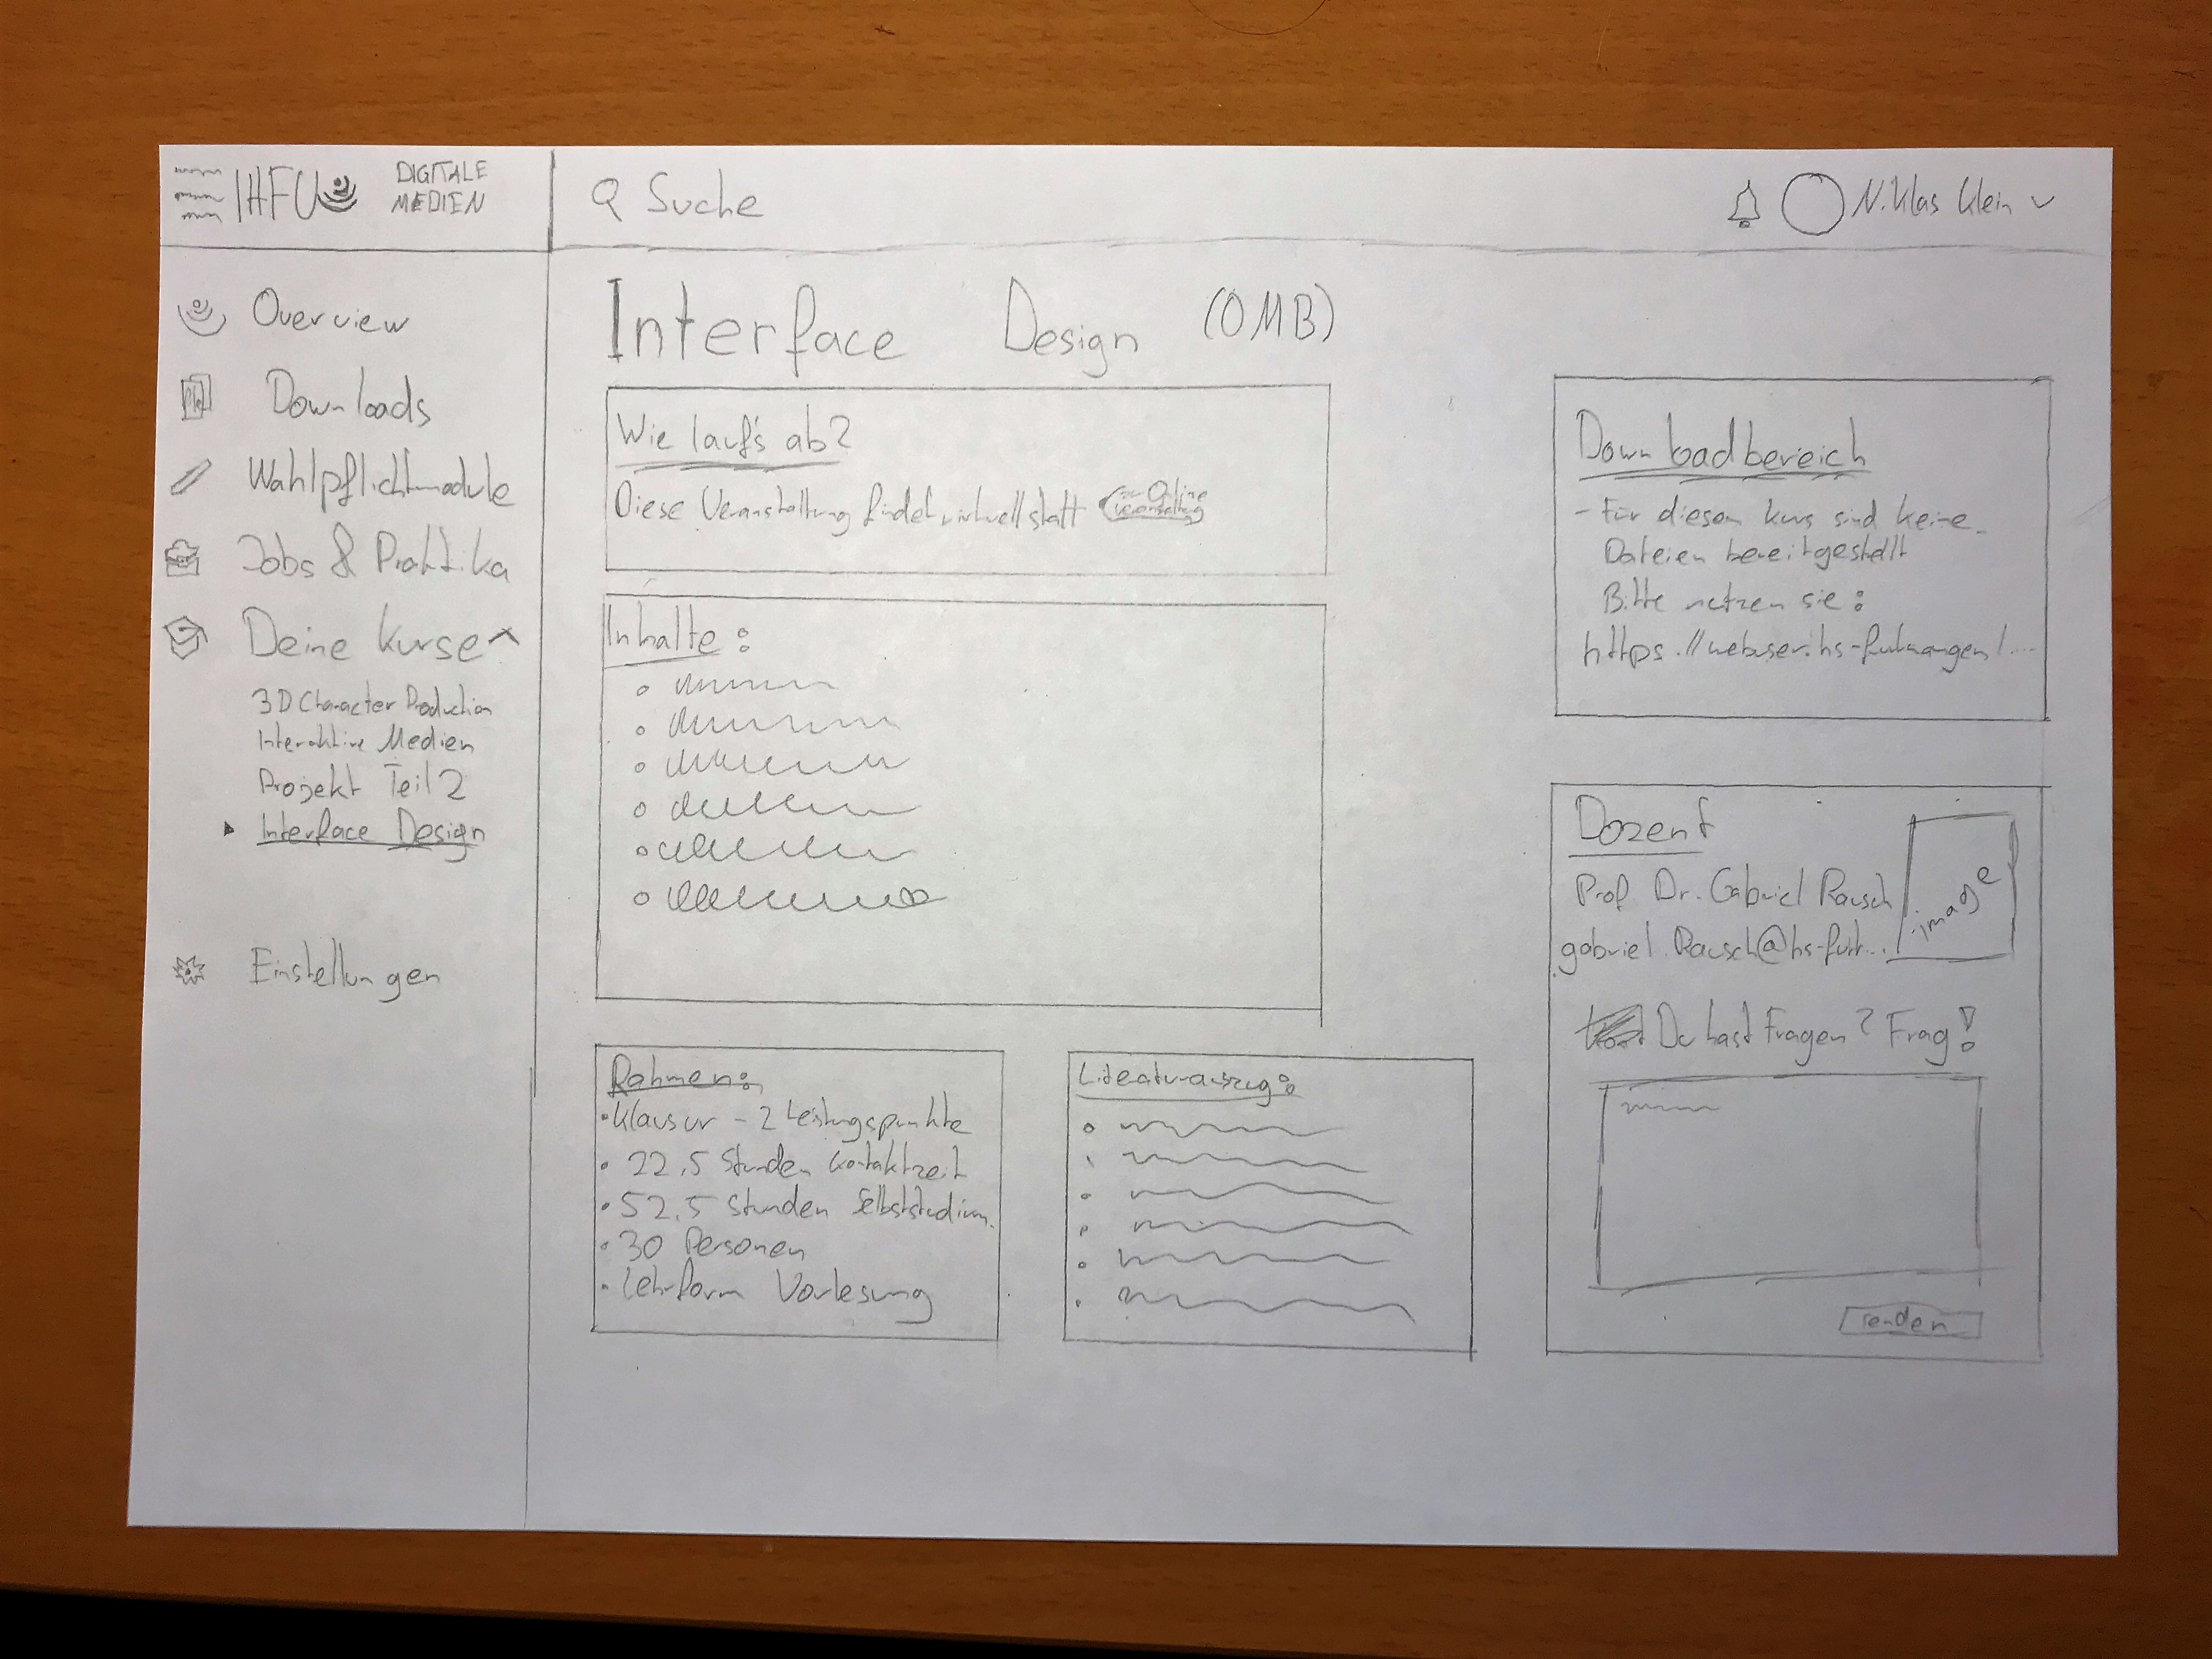 HFU DIGITALE
MEDIEN
Suche
Niklas Klein
Overview
Downloads
Wahlpflichtmodule
Jobs & Praktika
Deine Kurse
3D Character Production
Interaktive Medien
Projekt Teil 2
Interface Design
Einstellungen
Interface Design (OMB)
Wie lauf's ab?
Diese Veranstaltung findet virtuell statt
Online
Inhalte:
Rahmen:
Klausur - 2 Leistungspunkte
22,5 Stunden Kontaktzeit
52,5 Stunden Selbststudium
30 Personen
Lehrform Vorlesung
Literaturauszug:
Downloadbereich
- Für diesen Kurs sind keine
Dateien bereitgestellt
Bitte nutzen sie:
https://webuser.hs-furtwangen/....
Dozent
Prof. Dr. Gabriel Rausch
gabriel.Rausch@hs-furt...
image
Du hast Fragen? Frag!
senden